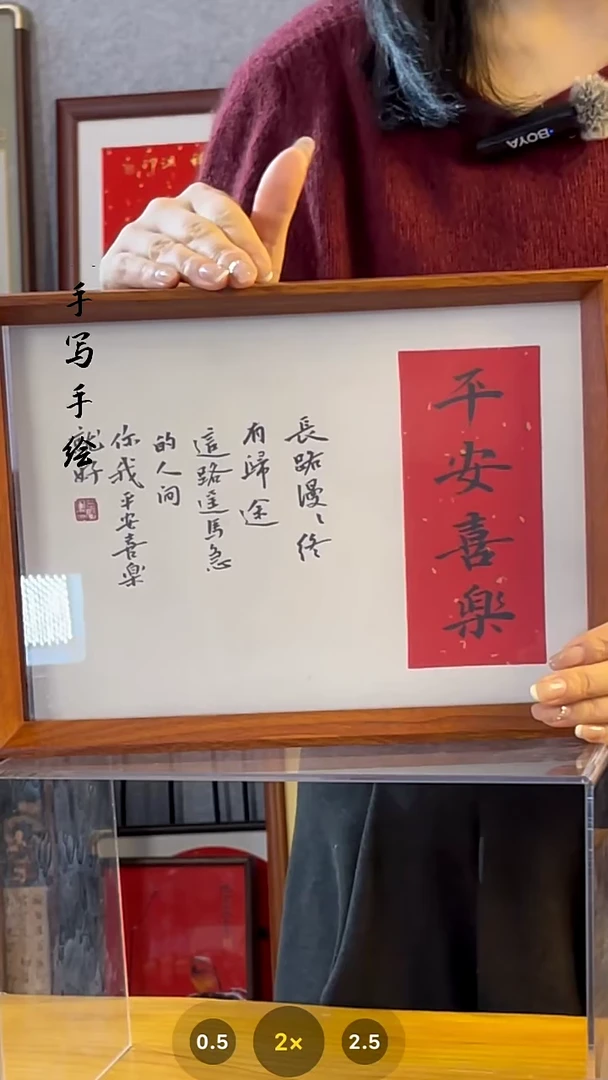 平安喜楽
長路漫漫終
有歸途
這路遥馬急
的人间
你我平安喜楽
手写手绘
BOYA
0.5 2× 2.5